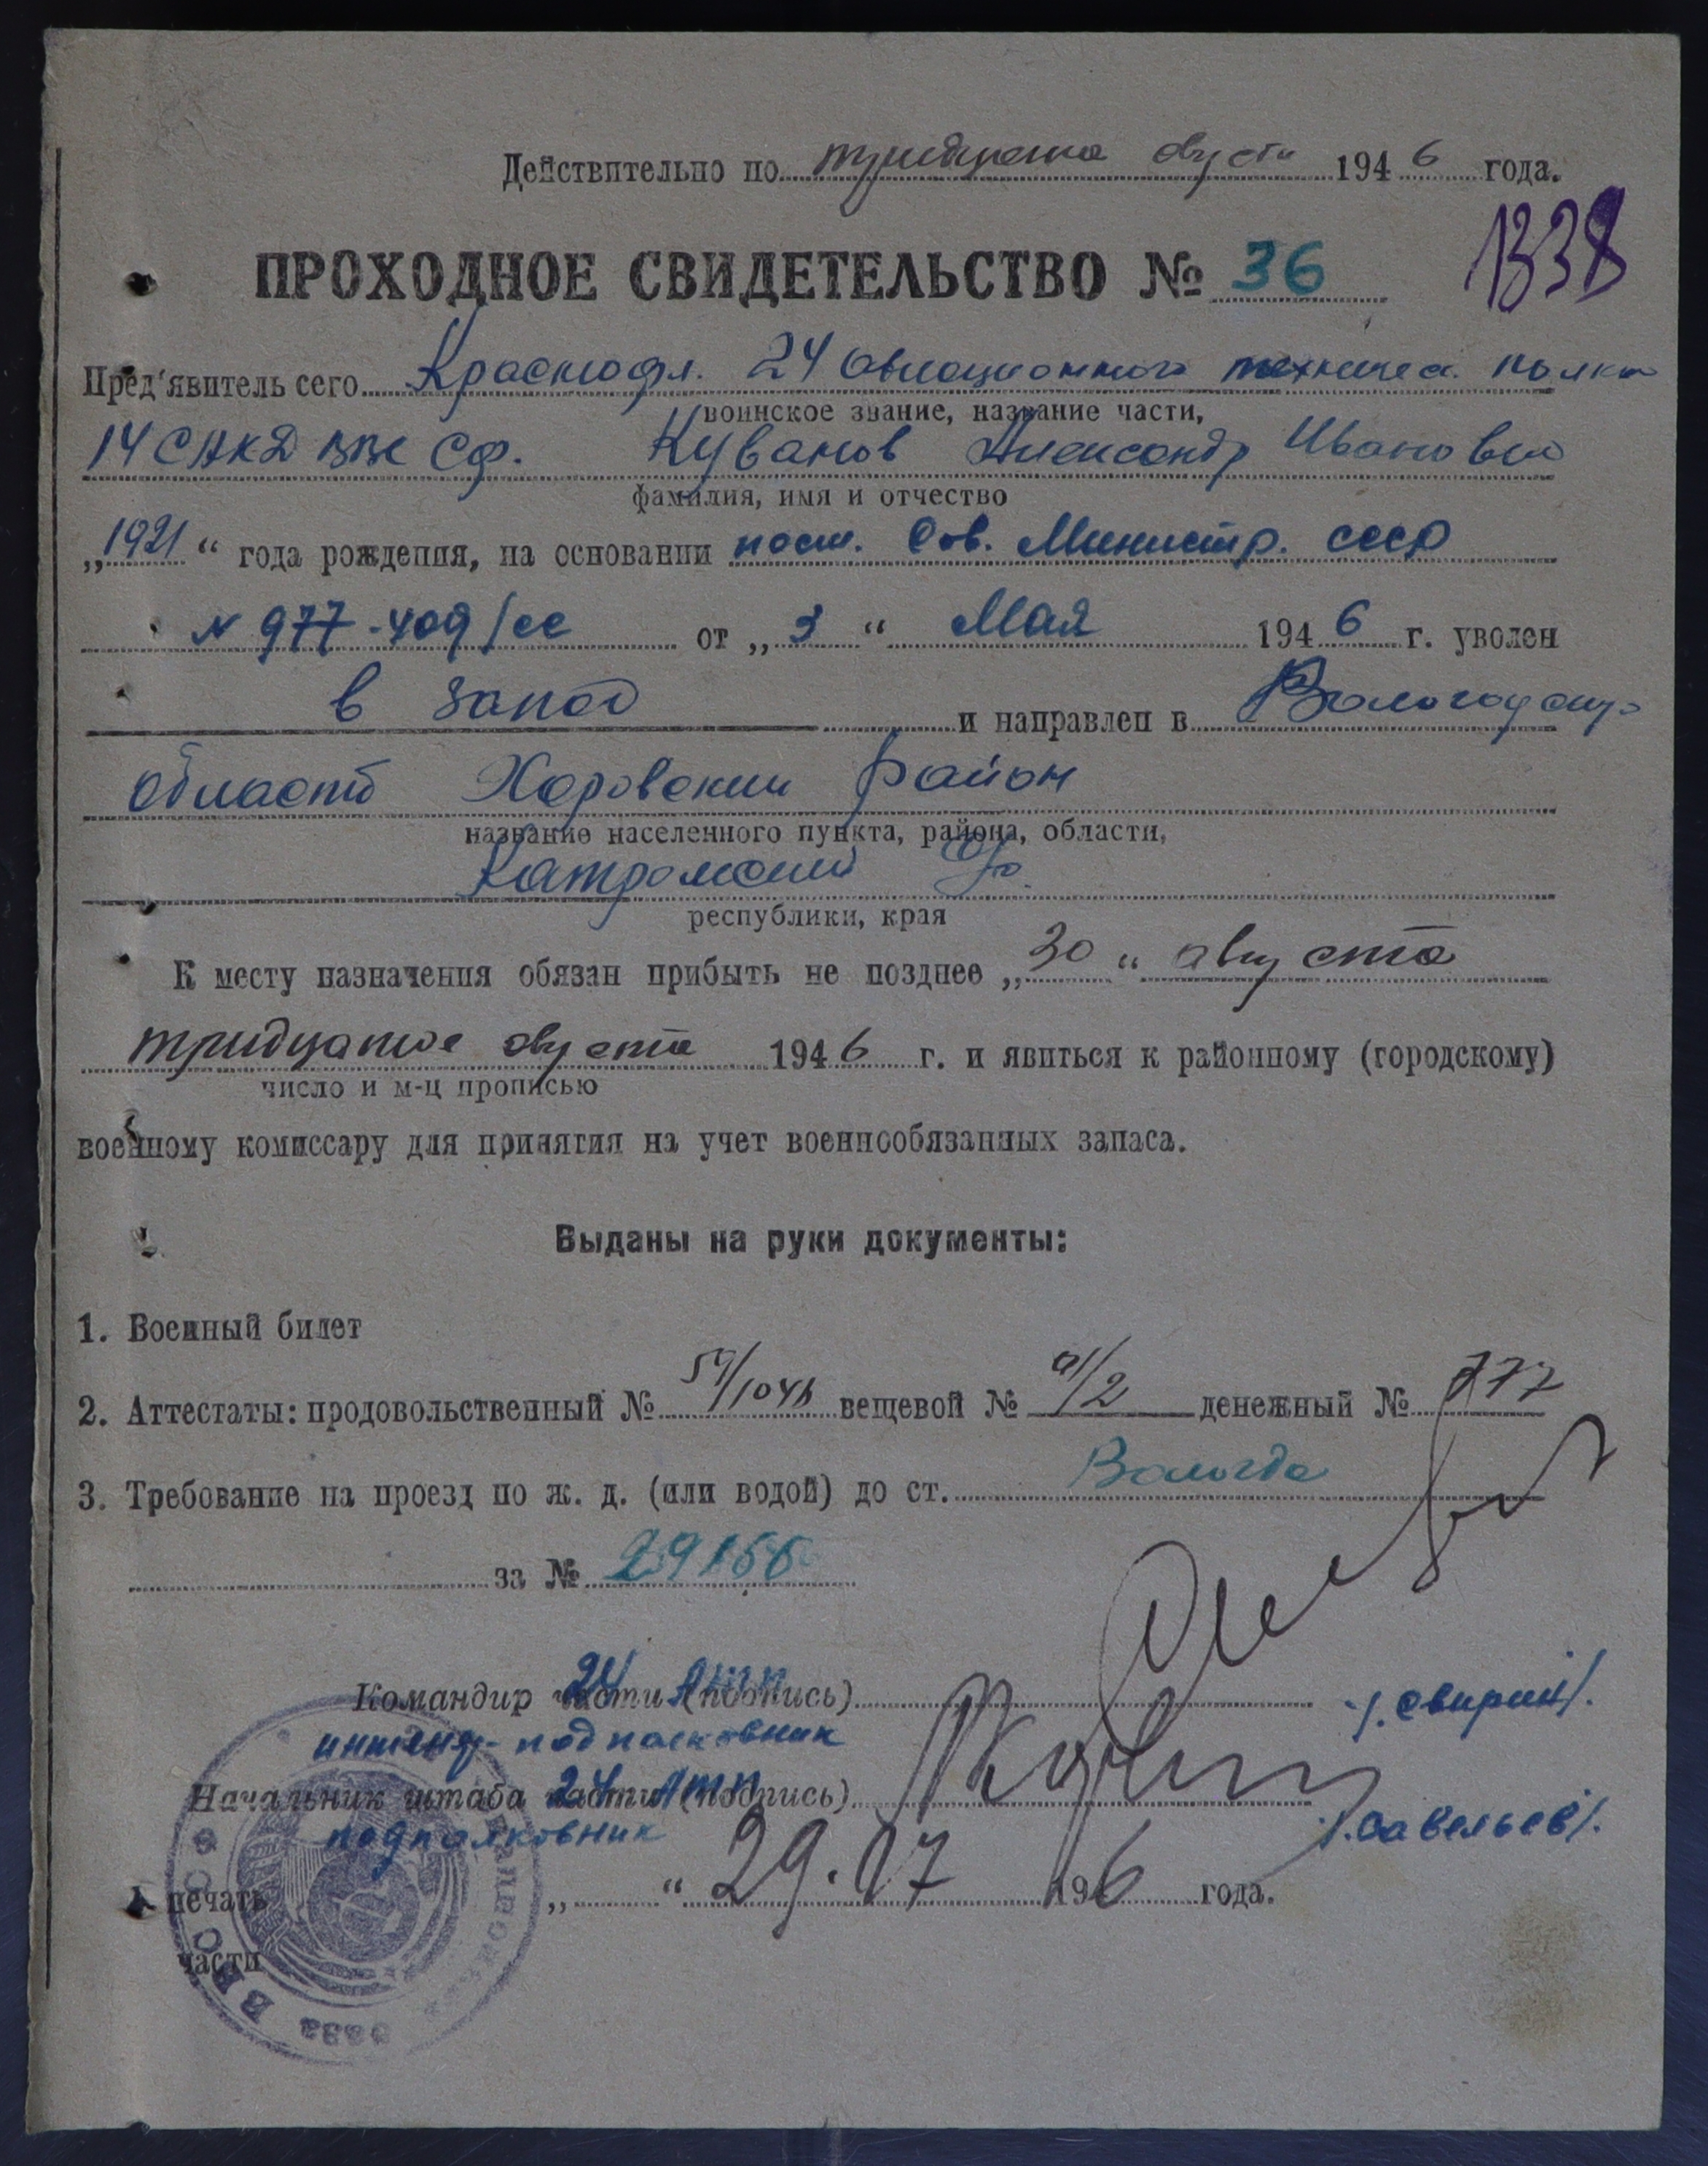 Действительно по тридцатого августа 1946 года.
1338
ПРОХОДНОЕ СВИДЕТЕЛЬСТВО № 36
Пред'явитель сего Краснофл. 24 авиационного техническ. полка
воинское звание, название части,
14 САКД ВВС СФ. Куванов Александр Иванович
фамилия, имя и отчество
„1921“ года рождения, на основании пост. Сов. Министр. СССР
N 977-409/сс от „3“ Мая 1946 г. уволен
в запас и направлен в Вологодскую
область Харовский район
название населенного пункта, района, области,
Катромский
республики, края
К месту назначения обязан прибыть не позднее „30“ августа
тридцатое августа 1946 г. и явиться к районному (городскому)
число и м-ц прописью
военному комиссару для принятия на учет военнообязанных запаса.
Выданы на руки документы:
1. Военный билет
2. Аттестаты: продовольственный № вещевой № /2 денежный № 777
3. Требование на проезд по ж. д. (или водой) до ст. Вологда
за № 29155
Командир части (подпись) 24 АТП /.Свирин/.
инженер-подполковник
Начальник штаба части (подпись) 24 АТП /.Савельев/.
подполковник
печать „ “ 29.07 1946 года.
части